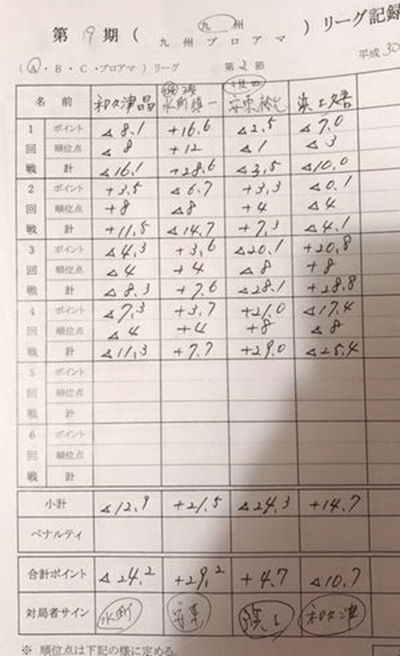 第 19 期 ( 九 州 ) リーグ記録
九 州 プロアマ
平成30
(A・B・C・プロアマ)リーグ 第 2 節
名 前 和久津晶 水町慎一 安東裕允 浜上文吾
1 ポイント △8.1 +16.6 △2.5 △7.0
回 順位点 △8 +12 △1 △3
戦 計 △16.1 +28.6 △3.5 △10.0
2 ポイント +3.5 △6.7 +3.3 △0.1
回 順位点 +8 △8 +4 △4
戦 計 +11.5 △14.7 +7.3 △4.1
3 ポイント △4.3 +3.6 △20.1 +20.8
回 順位点 △4 +4 △8 +8
戦 計 △8.3 +7.6 △28.1 +28.8
4 ポイント △7.3 +3.7 +21.0 △17.4
回 順位点 △4 +4 +8 △8
戦 計 △11.3 +7.7 +29.0 △25.4
5 ポイント
回 順位点
戦 計
6 ポイント
回 順位点
戦 計
小計 △12.9 +21.5 △24.3 +14.7
ペナルティ
合計ポイント △24.2 +29.2 +4.7 △10.7
対局者サイン 水町 安東 浜上 和久津
※ 順位点は下記の様に定める。